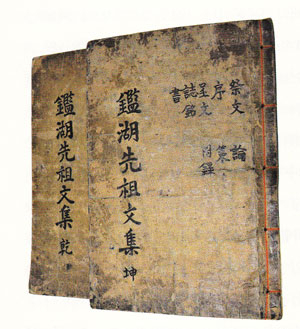 祭文 論
序 策
呈文 附錄
誌銘
書
鑑湖先祖文集 坤
鑑湖先祖文集 乾